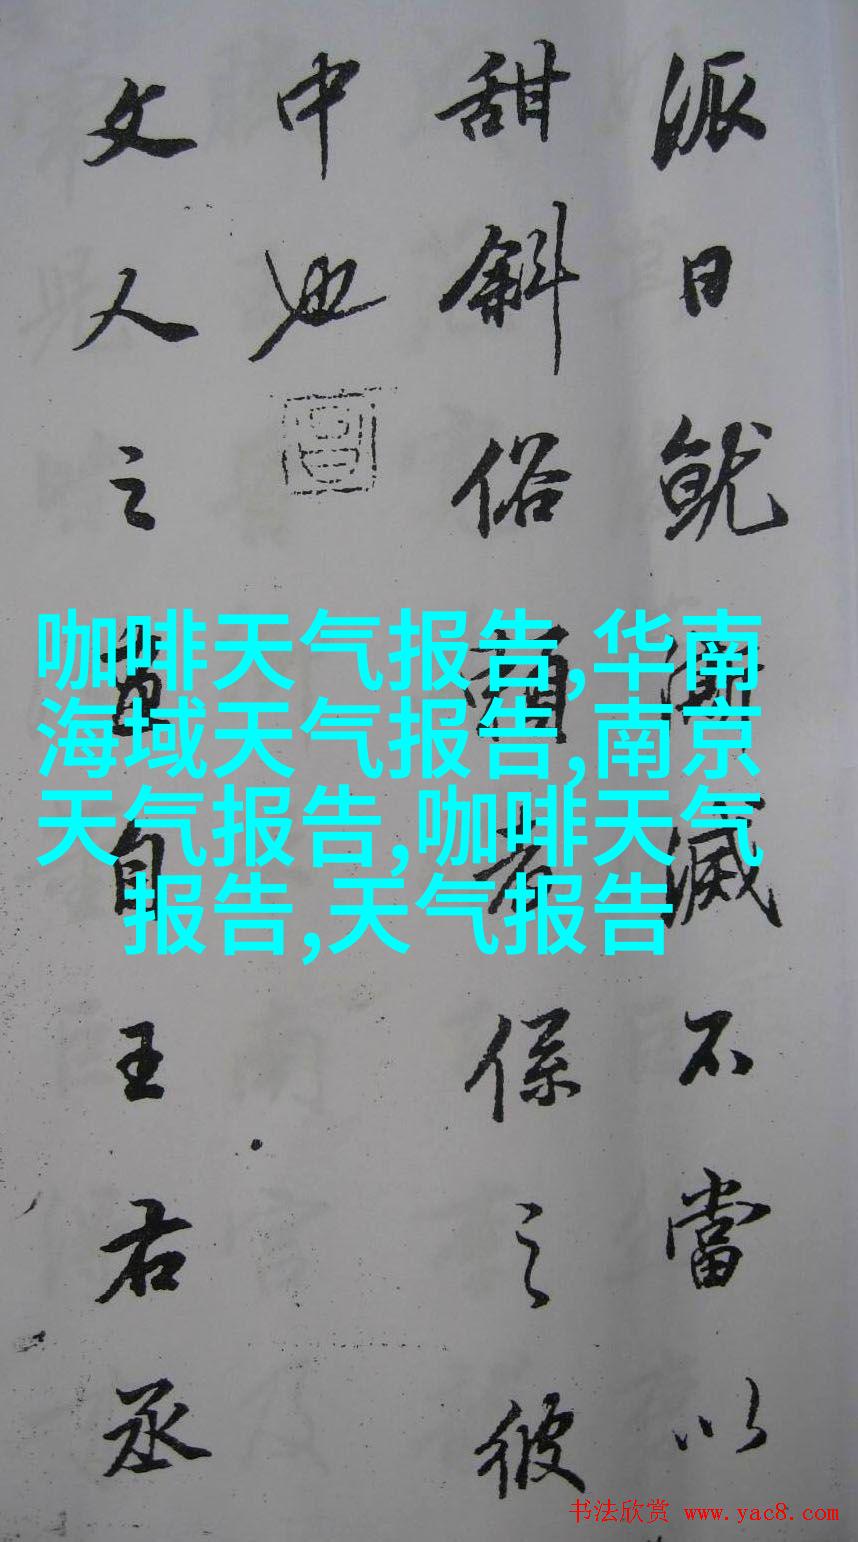 派日就漸滅不當以
甜斜俗者係之彼
中也
文人之畫自王右丞
咖啡天气报告,华南
海域天气报告,南京
天气报告,咖啡天气
报告,天气报告
书法欣赏 www.yac8.com